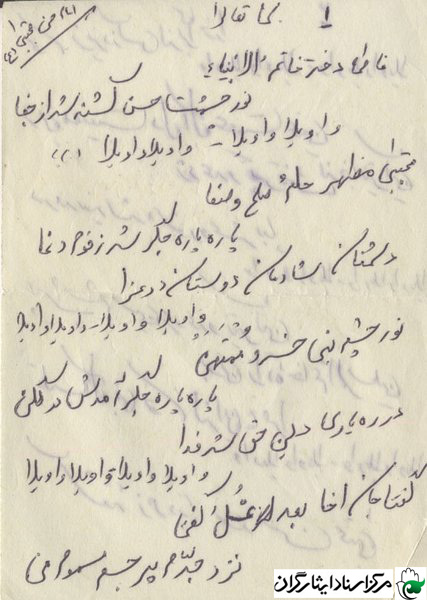 ۱ بسمه تعالی
فاطمه دختر خاتم الانبیاء
نور چشمت حسن کشته شد از جفا
واویلا واویلا - واویلا واویلا
مجتبی مظهر حلم صلح و صفا
پاره پاره جگر شد ز قوم دغا
دشمنان شادمان دوستان در عزا
واویلا واویلا - واویلا واویلا
نور چشم نبی خسرو ممتحن
پاره پاره جگر آمدش در لگن
در ره یاری دین حق شد فدا
واویلا واویلا واویلا واویلا
گفتا جان اخا بعد از غسل و کفن
نزد جدم پیمبر
مرکز اسناد ایثارگران